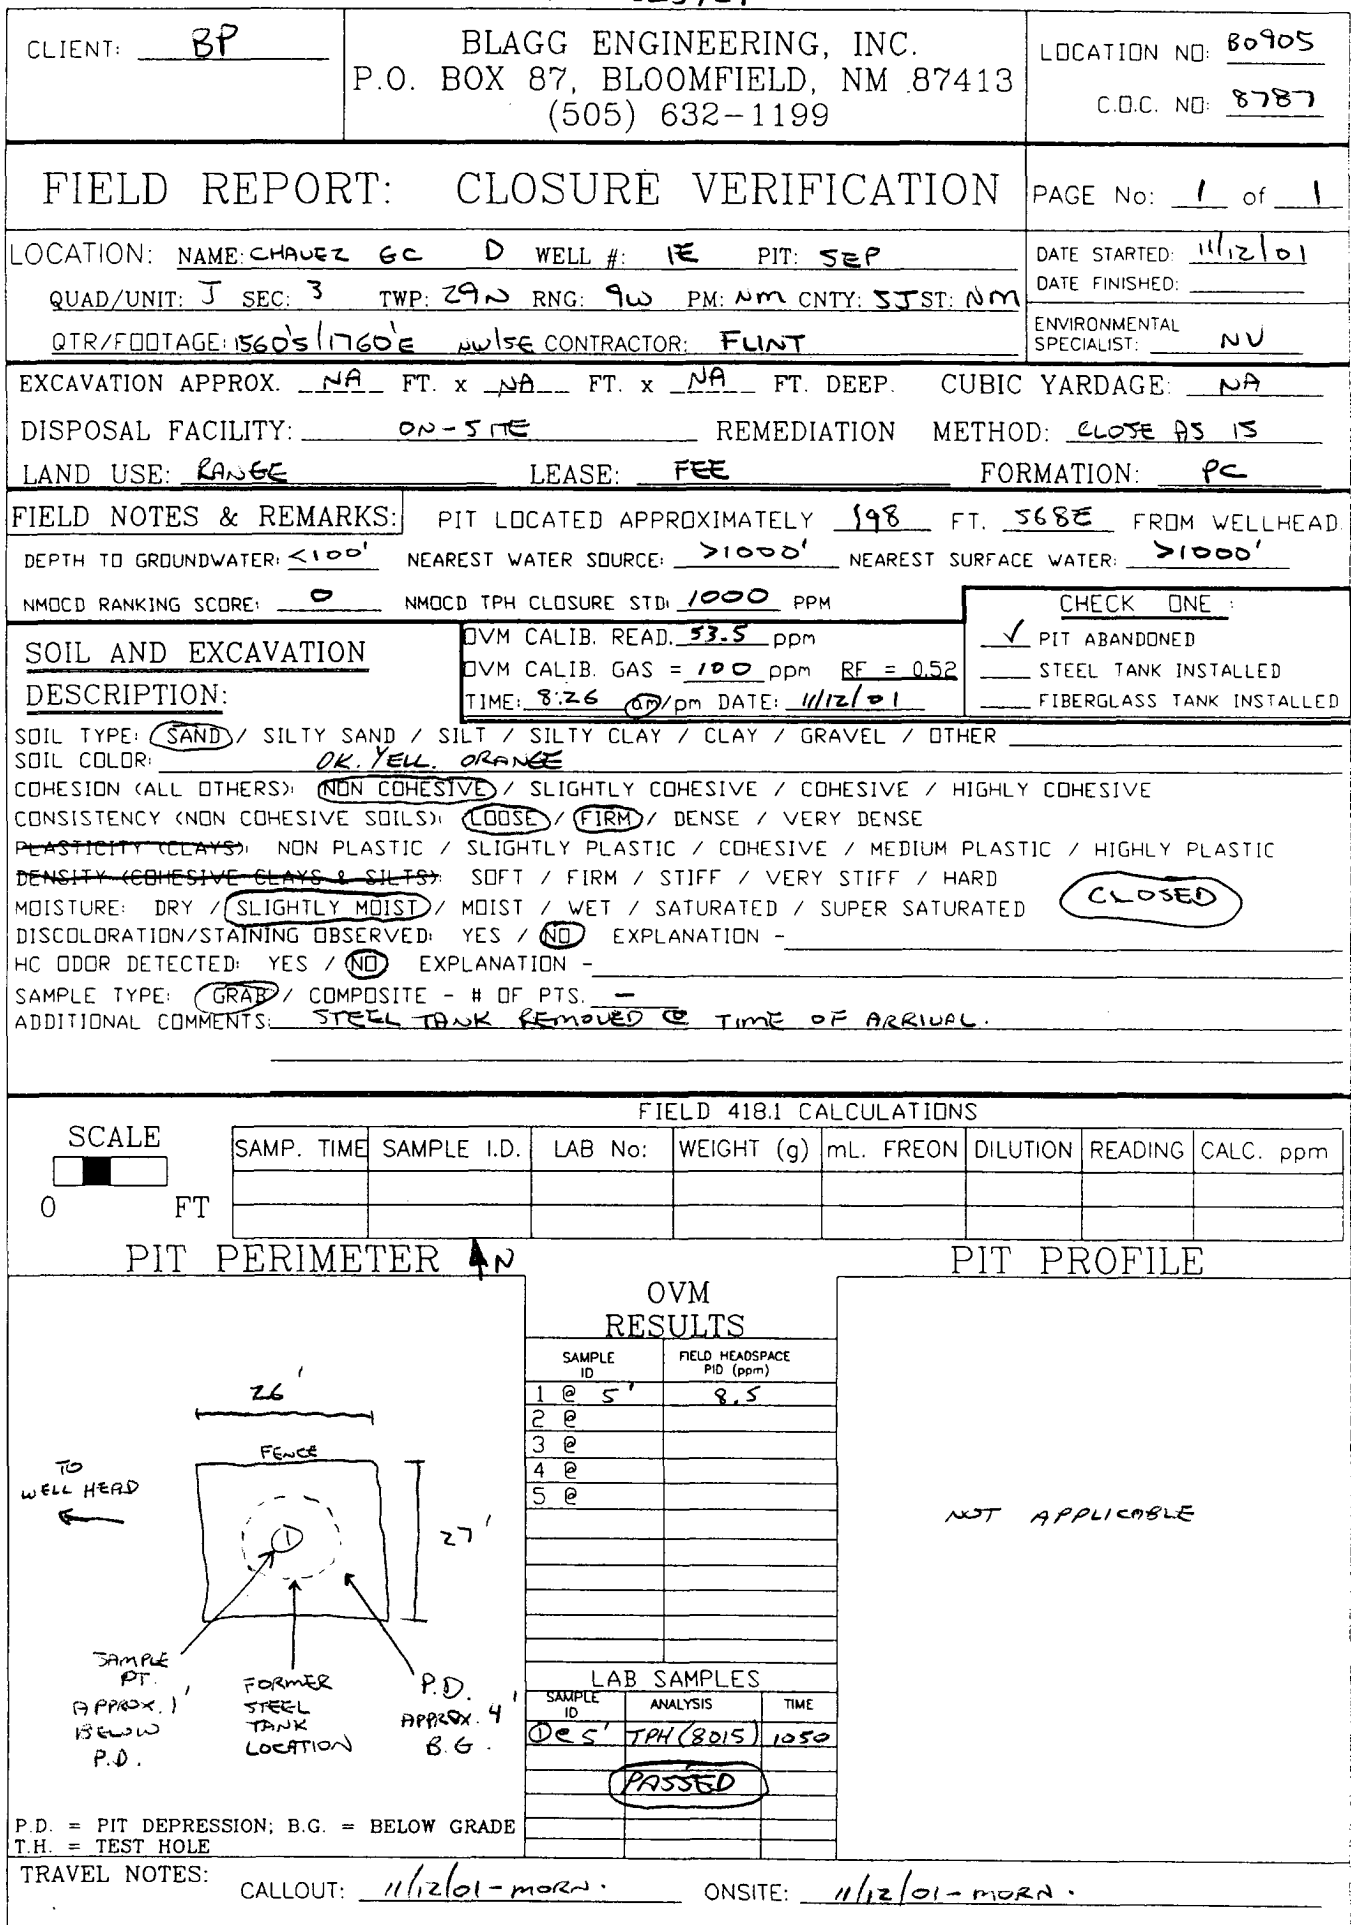 CLIENT: BP
BLAGG ENGINEERING, INC.
P.O. BOX 87, BLOOMFIELD, NM 87413
(505) 632-1199
LOCATION NO: B0905
C.O.C. NO: 8787
FIELD REPORT: CLOSURE VERIFICATION
PAGE No: 1 of 1
LOCATION: NAME: CHAVEZ GC D WELL #: 1E PIT: SEP
QUAD/UNIT: J SEC: 3 TWP: 29N RNG: 9W PM: NM CNTY: SJ ST: NM
QTR/FOOTAGE: 1560'S/1760'E NW/SE CONTRACTOR: FLINT
DATE STARTED: 11/12/01
DATE FINISHED:
ENVIRONMENTAL
SPECIALIST: NV
EXCAVATION APPROX. NA FT. x NA FT. x NA FT. DEEP. CUBIC YARDAGE: NA
DISPOSAL FACILITY: ON-SITE REMEDIATION METHOD: CLOSE AS IS
LAND USE: RANGE LEASE: FEE FORMATION: PC
FIELD NOTES & REMARKS: PIT LOCATED APPROXIMATELY 198 FT. S68E FROM WELLHEAD.
DEPTH TO GROUNDWATER: <100' NEAREST WATER SOURCE: >1000' NEAREST SURFACE WATER: >1000'
NMOCD RANKING SCORE: 0 NMOCD TPH CLOSURE STD: 1000 PPM
CHECK ONE :
✓ PIT ABANDONED
STEEL TANK INSTALLED
FIBERGLASS TANK INSTALLED
SOIL AND EXCAVATION
DESCRIPTION:
OVM CALIB. READ. 53.5 ppm
OVM CALIB. GAS = 100 ppm RF = 0.52
TIME: 8:26 am/pm DATE: 11/12/01
SOIL TYPE: SAND / SILTY SAND / SILT / SILTY CLAY / CLAY / GRAVEL / OTHER
SOIL COLOR: DK. YELL. ORANGE
COHESION (ALL OTHERS): NON COHESIVE / SLIGHTLY COHESIVE / COHESIVE / HIGHLY COHESIVE
CONSISTENCY (NON COHESIVE SOILS): LOOSE / FIRM / DENSE / VERY DENSE
PLASTICITY (CLAYS): NON PLASTIC / SLIGHTLY PLASTIC / COHESIVE / MEDIUM PLASTIC / HIGHLY PLASTIC
DENSITY (COHESIVE CLAYS & SILTS): SOFT / FIRM / STIFF / VERY STIFF / HARD
MOISTURE: DRY / SLIGHTLY MOIST / MOIST / WET / SATURATED / SUPER SATURATED
CLOSED
DISCOLORATION/STAINING OBSERVED: YES / NO EXPLANATION -
HC ODOR DETECTED: YES / NO EXPLANATION -
SAMPLE TYPE: GRAB / COMPOSITE - # OF PTS. -
ADDITIONAL COMMENTS: STEEL TANK REMOVED @ TIME OF ARRIVAL.
FIELD 418.1 CALCULATIONS
SCALE
0 FT
SAMP. TIME SAMPLE I.D. LAB No: WEIGHT (g) mL. FREON DILUTION READING CALC. ppm
PIT PERIMETER N
PIT PROFILE
OVM
RESULTS
SAMPLE ID FIELD HEADSPACE PID (ppm)
1 @ 5' 8.5
2 @
3 @
4 @
5 @
26'
FENCE
TO
WELL HEAD
27'
1
SAMPLE
PT.
APPROX. 1'
BELOW
P.D.
FORMER
STEEL
TANK
LOCATION
P.D.
APPROX. 4'
B.G.
NOT APPLICABLE
LAB SAMPLES
SAMPLE ID ANALYSIS TIME
① @ 5' TPH (8015) 1050
PASSED
P.D. = PIT DEPRESSION; B.G. = BELOW GRADE
T.H. = TEST HOLE
TRAVEL NOTES: CALLOUT: 11/12/01 - MORN. ONSITE: 11/12/01 - MORN.